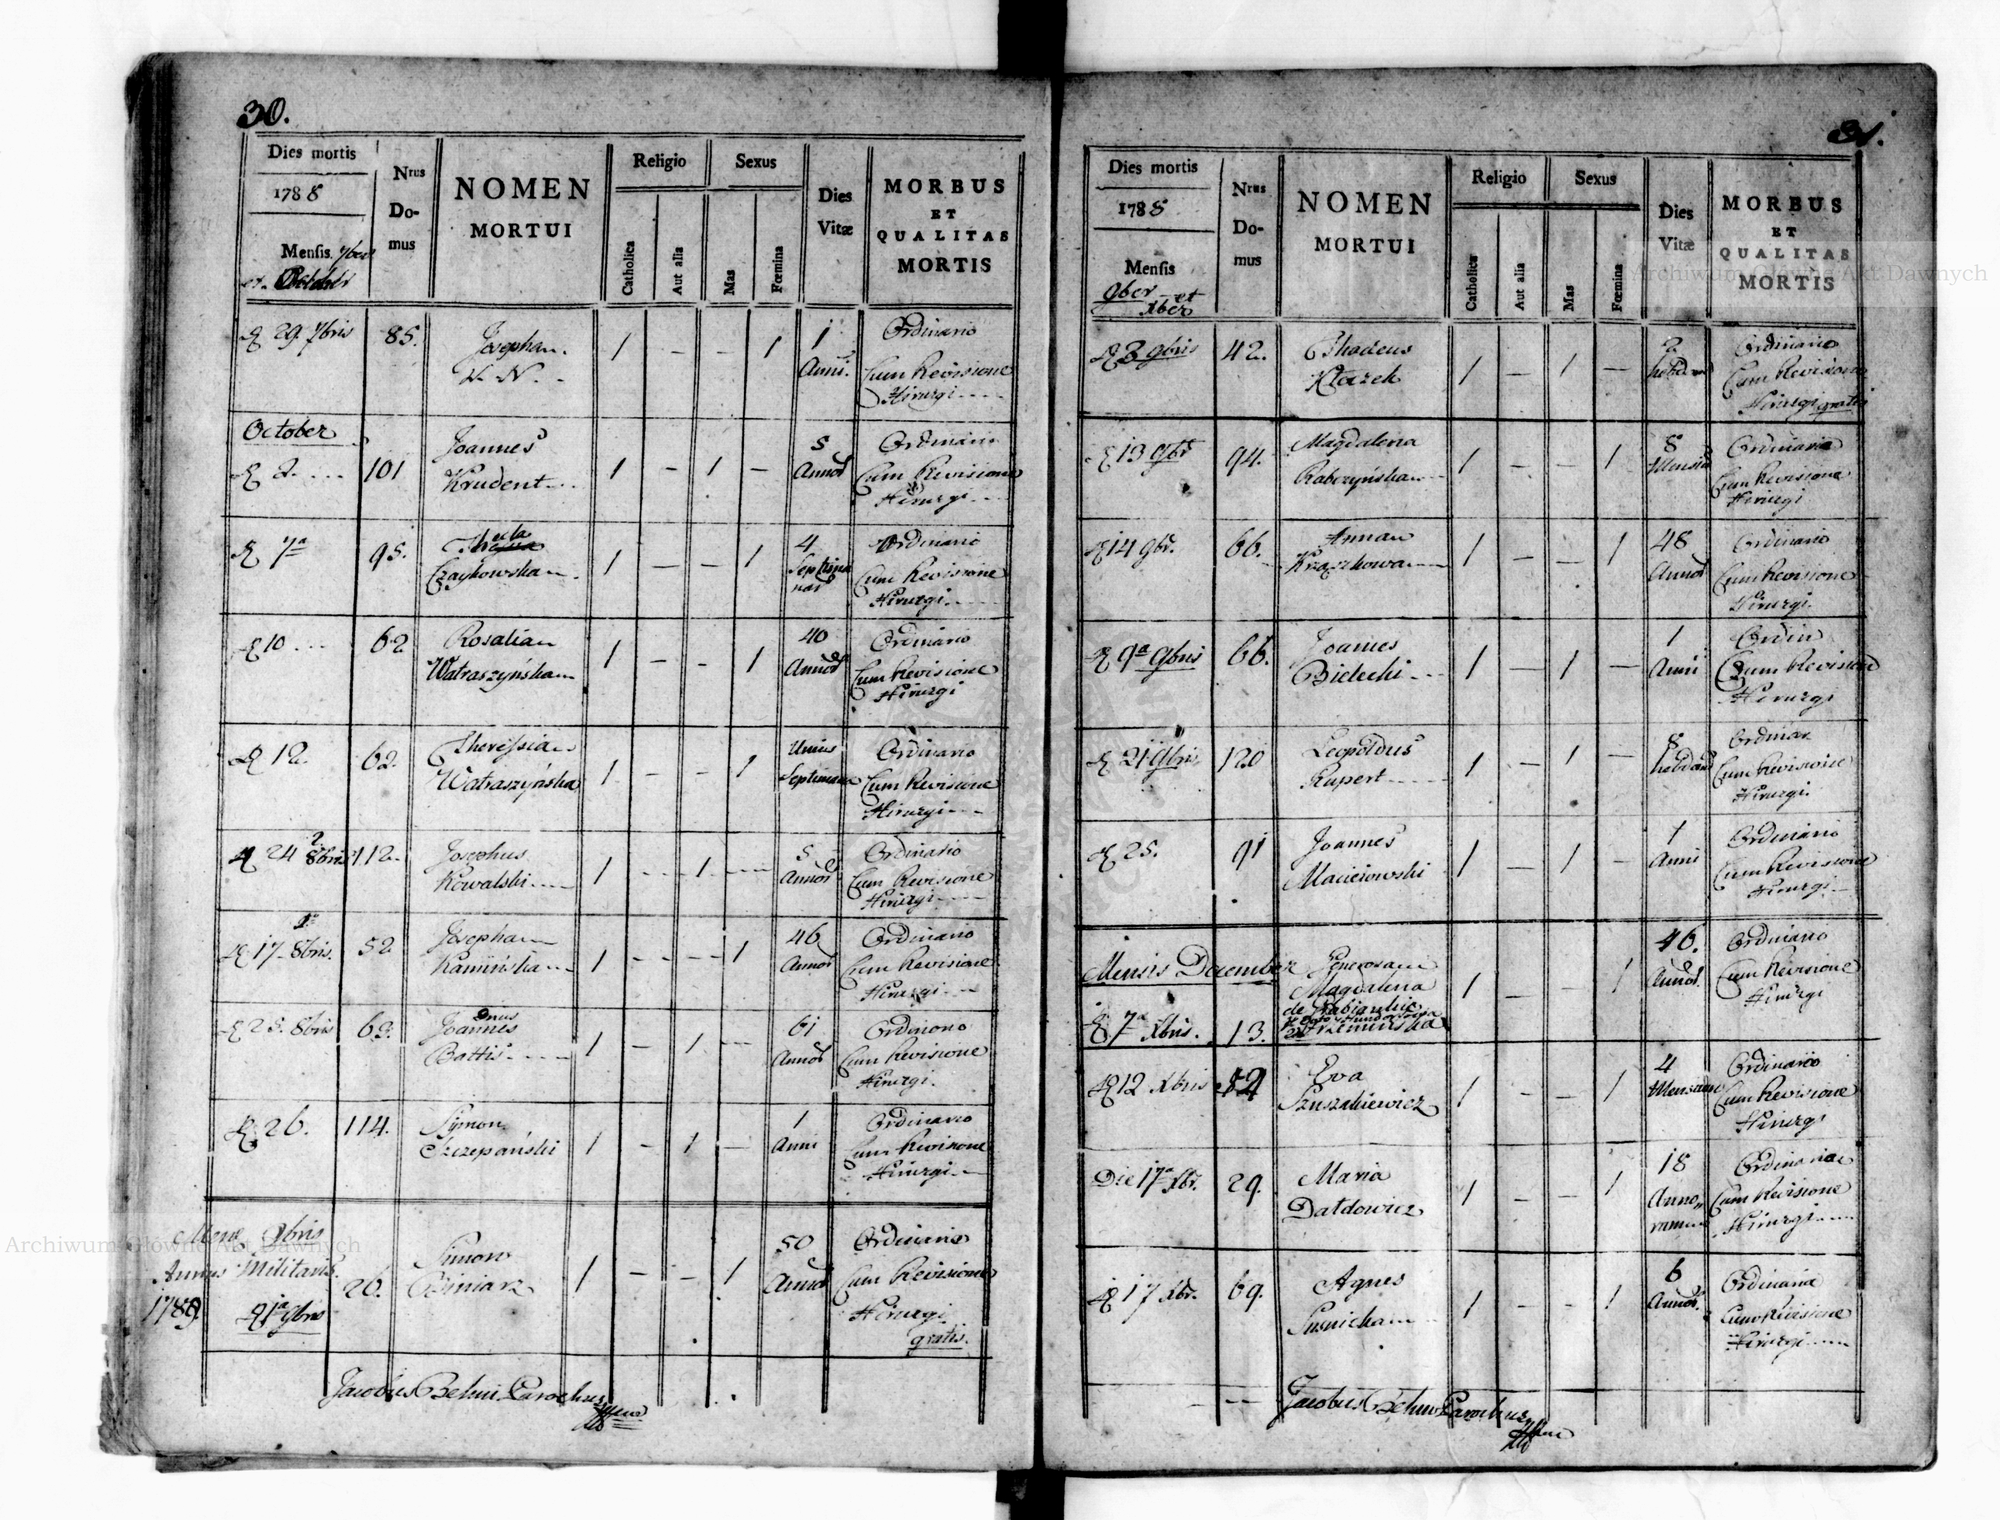 30.
Dies mortis
1788
Mensis 7ber
et October
Nrus
Do-
mus
NOMEN
MORTUI
Religio
Catholica
Aut alia
Sexus
Mas
Fœmina
Dies
Vitæ
MORBUS
ET
QUALITAS
MORTIS
29 7bris 85. Josepha
N. N. 1 - - 1 1
Anni. Ordinario
Cum Revisione
Hirurgi
October
2. 101 Joannes
Krudent 1 - 1 - 5
Annor Ordinario
Cum Revisione
Hirurgi
7a 95. Thecla
Czaykowska 1 - - 1 4
Septima
nar Ordinario
Cum Revisione
Hirurgi
10 62 Rosalia
Watraszyńska 1 - - 1 40
Annor Ordinario
Cum Revisione
Hirurgi
12. 62. Theressia
Watraszyńska 1 - - 1 Unius
Septimana Ordinario
Cum Revisione
Hirurgi
24 8bris 112. Josephus
Kowalski 1 - 1 - 5
Annor Ordinario
Cum Revisione
Hirurgi
17 8bris. 52 Josepha
Kamińska 1 - - 1 46
Annor Ordinario
Cum Revisione
Hirurgi
25. 8bris 62. Joannes
Battis 1 - 1 - 61
Annor Ordinario
Cum Revisione
Hirurgi.
26. 114. Symon
Szczepański 1 - 1 - 1
Anni Ordinario
Cum Revisione
Hirurgi
Mens 9bris
Annus Militaris
1789
1a 9bris 26. Simon
Biniarz 1 - - 1 50
Annor Ordinario
Cum Revisione
Hirurgi
gratis.
Jacobus Behm Parochus
31.
Dies mortis
1788
Mensis
9ber et
Xber
Nrus
Do-
mus
NOMEN
MORTUI
Religio
Catholica
Aut alia
Sexus
Mas
Fœmina
Dies
Vitæ
MORBUS
ET
QUALITAS
MORTIS
3 9bris 42. Thadeus
Ktazek 1 - 1 - 2
hebdom Ordinario
Cum Revisione
Hirurgi gratis
13 9br 94. Magdalena
Rabczyńska 1 - - 1 8
Mensiū Ordinaria
Cum Revisione
Hirurgi
14 9br. 66. Anna
Krączkowa 1 - - 1 48
Annor Ordinario
Cum Revisione
Hirurgi.
9a 9bris 66. Joannes
Bielecki 1 - 1 - 1
Anni Ordin
Cum Revisione
Hirurgi
21 9bris 120 Leopoldus
Rupert 1 - 1 - 8
hebdom Ordinar
Cum Revisione
Hirurgi.
25. 91 Joannes
Macieiowski 1 - 1 - 1
Anni Ordinario
Cum Revisione
Hirurgi
Mensis December
7a Xbris. 13. Generosa
Magdalena
de
Brzeminska 1 - - 1 46.
Annor. Ordinario
Cum Revisione
Hirurgi
12 Xbris 52 Eva
Szuszkiewicz 1 - - 1 4
Mensium Ordinario
Cum Revisione
Hirurgi
Die 17a Xbr. 29. Maria
Datdowicz 1 - - 1 18
Anno„
rum Ordinaria
Cum Revisione
Hirurgi
17 Xbr. 69. Agnes
Susnicka 1 - - 1 6
Annor. Ordinaria
Cum Revisione
Hirurgi
Jacobus Behm Parochus
Archiwum Główne Akt Dawnych
Archiwum Główne Akt Dawnych